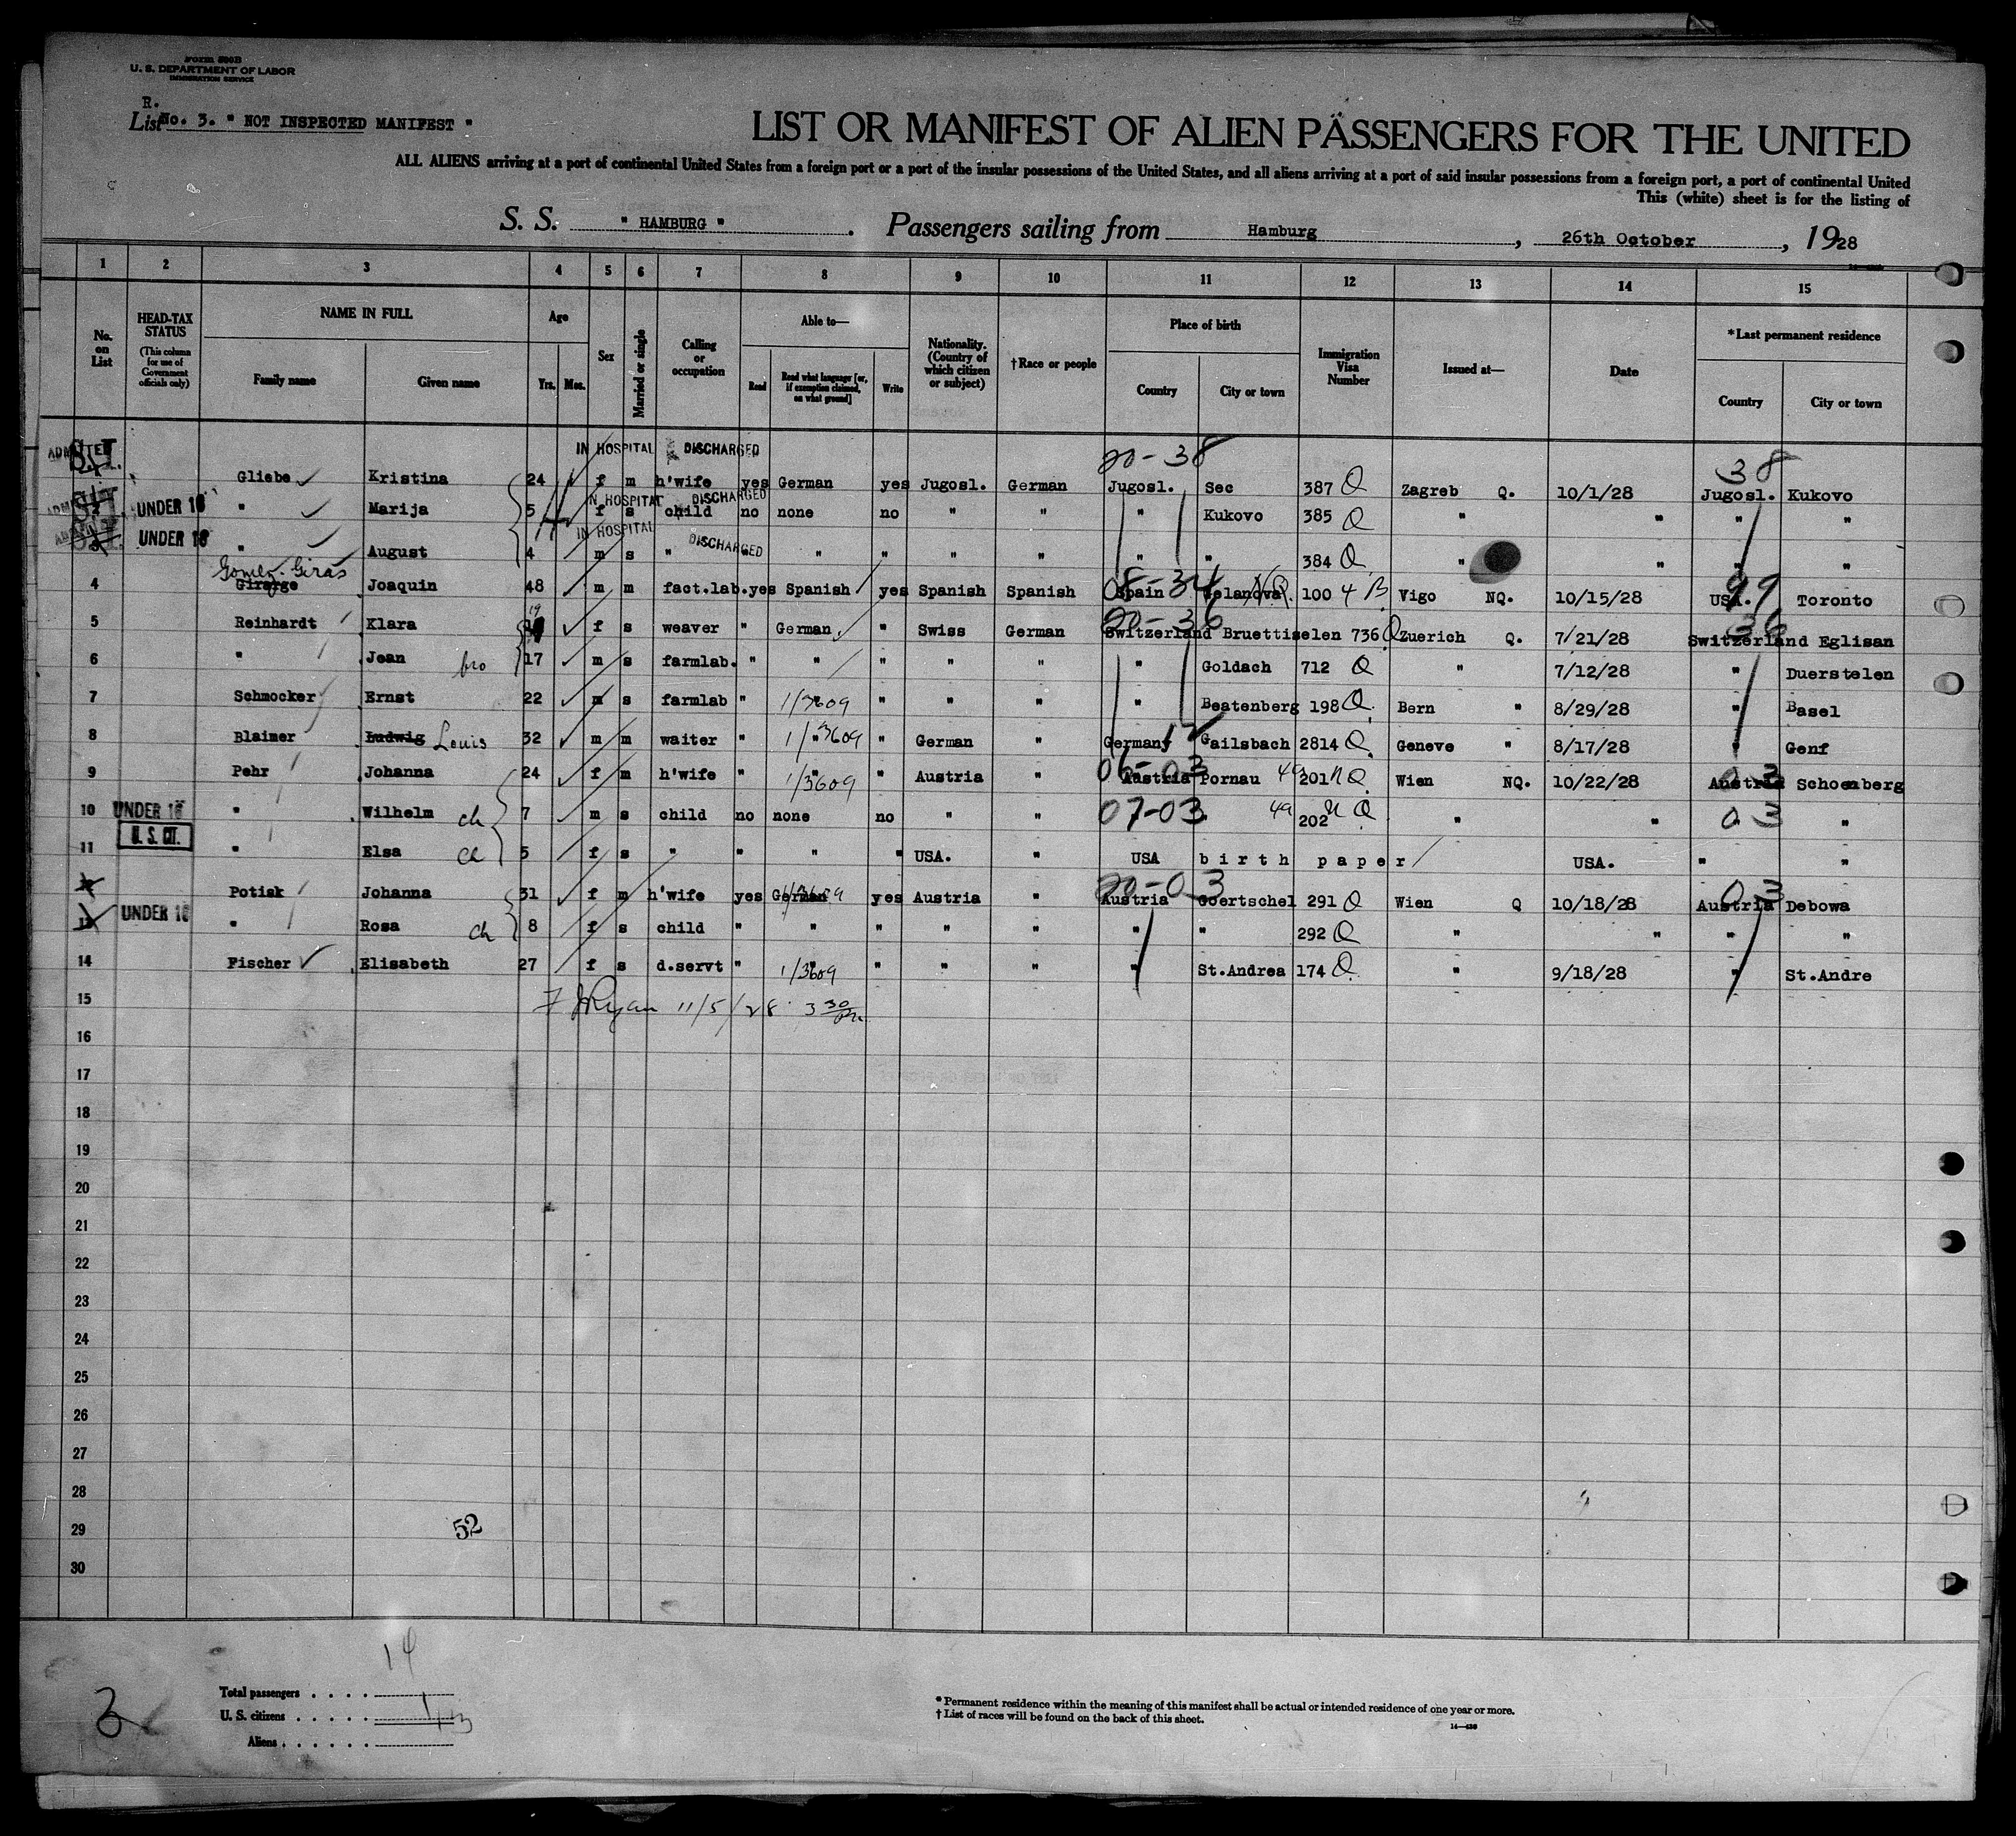 Form 500B
U. S. DEPARTMENT OF LABOR
IMMIGRATION SERVICE
R.
List No. 3. " NOT INSPECTED MANIFEST "
LIST OR MANIFEST OF ALIEN PASSENGERS FOR THE UNITED
ALL ALIENS arriving at a port of continental United States from a foreign port or a port of the insular possessions of the United States, and all aliens arriving at a port of said insular possessions from a foreign port, a port of continental United
This (white) sheet is for the listing of
S. S. " HAMBURG " . Passengers sailing from Hamburg , 26th October , 1928
1 2 3 4 5 6 7 8 9 10 11 12 13 14 15
No. on List
HEAD-TAX STATUS (This column for use of Government officials only)
NAME IN FULL
Family name Given name
Age
Yrs. Mos.
Sex
Married or single
Calling or occupation
Able to—
Read
Read what language [or, if exemption claimed, on what ground]
Write
Nationality. (Country of which citizen or subject)
†Race or people
Place of birth
Country City or town
Immigration Visa Number
Issued at—
Date
*Last permanent residence
Country City or town
ADMITTED S.I. IN HOSPITAL DISCHARGED 20-38 38
Gliebe Kristina 24 f m h'wife yes German yes Jugosl. German Jugosl. Sec 387 Q Zagreb Q. 10/1/28 Jugosl. Kukovo
IN HOSPITAL DISCHARGED
UNDER 16 " Marija 5 f s child no none no " " " Kukovo 385 Q " " " "
IN HOSPITAL DISCHARGED
UNDER 16 " August 4 m s " " " " " " " " 384 Q " " " "
Gomez Giras
4 Joaquin 48 m m fact.lab. yes Spanish yes Spanish Spanish 08-34 Spain Celanova. NQ 100 4 B Vigo NQ. 10/15/28 99 USA. Toronto
20-36 36
5 Reinhardt Klara 19 f s weaver " German " Swiss German Switzerland Bruettiselen 736 Q Zuerich Q. 7/21/28 Switzerland Eglisan
6 " Jean bro 17 m s farmlab. " " " " " " Goldach 712 Q " 7/12/28 " Duerstelen
7 Schmocker Ernst 22 m s farmlab " 1/3609 " " " " Beatenberg 198 Q. Bern " 8/29/28 " Basel
8 Blaimer Ludwig Louis 32 m m waiter " 1/3609 " German " Germany Gailsbach 2814 Q. Geneve " 8/17/28 " Genf
9 Pehr Johanna 24 f m h'wife " 1/3609 " Austria " Austria Pornau 201 NQ. Wien NQ. 10/22/28 03 Austria Schoenberg
10 UNDER 16 " Wilhelm ch 7 m s child no none no " " 07-03 4a 202 NQ " " 03 "
U. S. CIT.
11 " Elsa ch 5 f s " " " " USA. " USA birth paper USA. " "
20-03 03
Potisk Johanna 31 f m h'wife yes German yes Austria " Austria Goertschel 291 Q Wien Q 10/18/28 Austria Debowa
UNDER 16 " Rosa ch 8 f s child " " " " " " " 292 Q " " " "
14 Fischer Elisabeth 27 f s d.servt " 1/3609 " " " " St.Andrea 174 Q. " 9/18/28 " St.Andre
15 F J Ryan 11/5/28 3 30 PM
16
17
18
19
20
21
22
23
24
25
26
27
28
29 52
30
3
Total passengers . . . . 14
U. S. citizens . . . . . 1
Aliens . . . . . . 13
* Permanent residence within the meaning of this manifest shall be actual or intended residence of one year or more.
† List of races will be found on the back of this sheet.